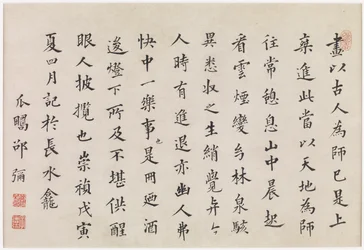 畫以古人為師已是上
乘進此當以天地為師
往常憩息山中晨起
看雲煙變幻林泉駭
異悉收之生綃覺與今
人時有進退亦幽人弗
快中一樂事也是冊迺酒
後燈下所及不堪供醒
眼人披攬也崇禎戊寅
夏四月記於長水龕
瓜疇邵彌